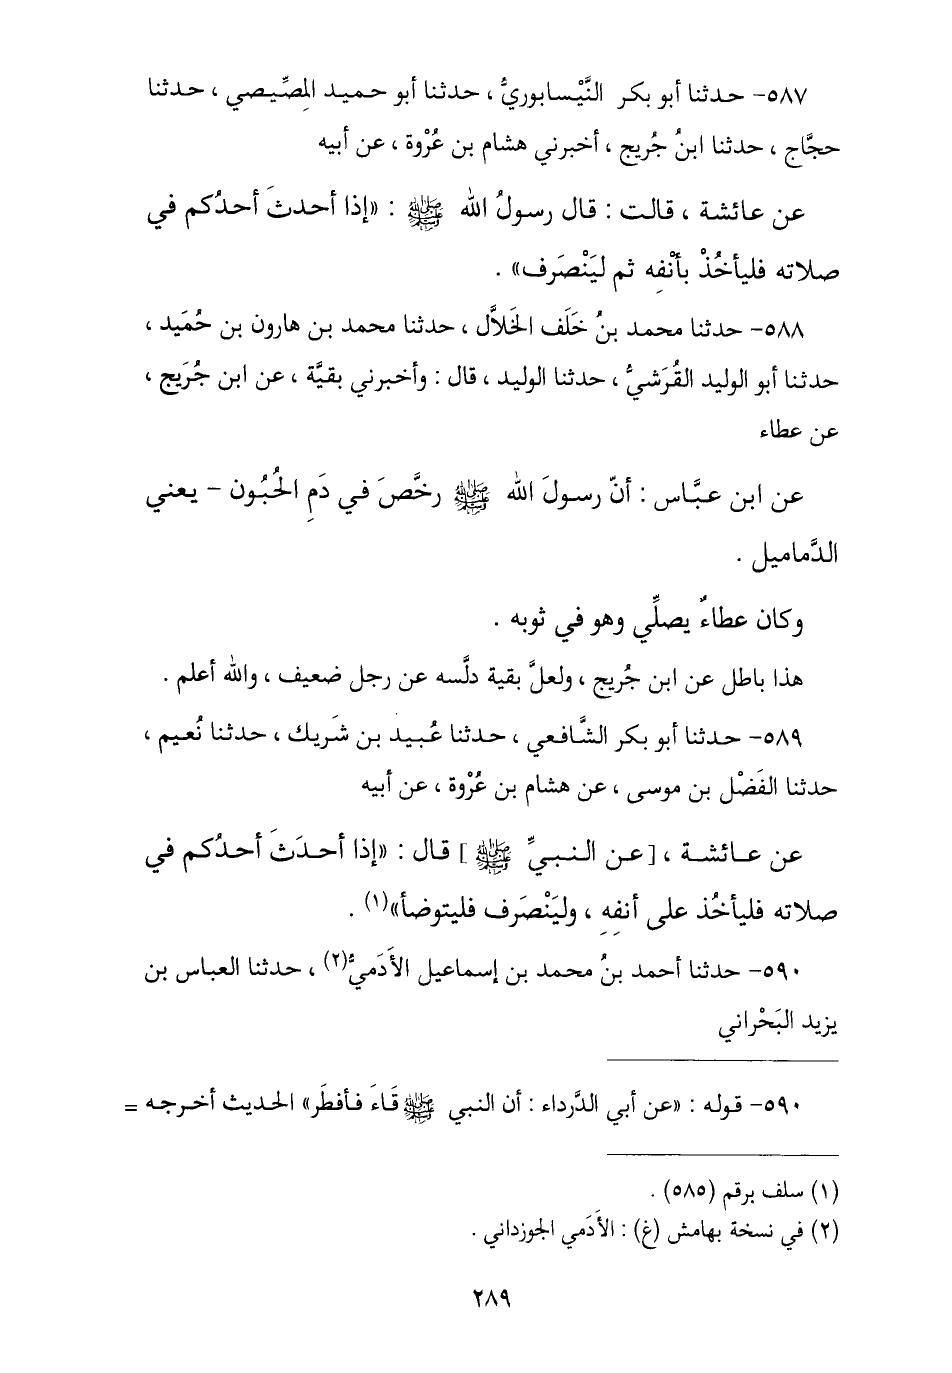 ٥٨٧- حدثنا أبو بكر النَّيْسابوريُّ ، حدثنا أبو حميد المِصِّيصي ، حدثنا
حجَّاج ، حدثنا ابنُ جُريج ، أخبرني هشام بن عُرْوة ، عن أبيه
عن عائشة ، قالت : قال رسولُ الله ﷺ : «إذا أحدثَ أحدُكم في
صلاته فليأخُذْ بأنْفِه ثم ليَنْصَرف» .
٥٨٨- حدثنا محمد بنُ خَلَف الخَلاَّل ، حدثنا محمد بن هارون بن حُمَيد ،
حدثنا أبو الوليد القُرَشيُّ ، حدثنا الوليد ، قال : وأخبرني بقيَّة ، عن ابن جُرَيج ،
عن عطاء
عن ابن عبَّاس : أنّ رسولَ الله ﷺ رخَّصَ في دَمِ الحُبُون - يعني
الدَّماميل .
وكان عطاءٌ يصلِّي وهو في ثوبه .
هذا باطل عن ابن جُريج ، ولعلَّ بقية دلَّسه عن رجل ضعيف ، والله أعلم .
٥٨٩- حدثنا أبو بكر الشَّافعي ، حدثنا عُبيد بن شَريك ، حدثنا نُعيم ،
حدثنا الفَضْل بن موسى ، عن هشام بن عُرْوة ، عن أبيه
عن عائشة ، [عن النبيِّ ﷺ] قال : «إذا أحدَثَ أحدُكم في
صلاته فليأخُذ على أنفِهِ ، وليَنْصَرف فليتوضأ»(١) .
٥٩٠- حدثنا أحمد بنُ محمد بن إسماعيل الأَدَميُّ(٢) ، حدثنا العباس بن
يزيد البَحْراني
٥٩٠- قوله : «عن أبي الدَّرداء : أن النبي ﷺ قَاءَ فأفطَر» الحديث أخرجه =
(١) سلف برقم (٥٨٥) .
(٢) في نسخة بهامش (غ) : الأَدَمي الجوزداني .
٢٨٩